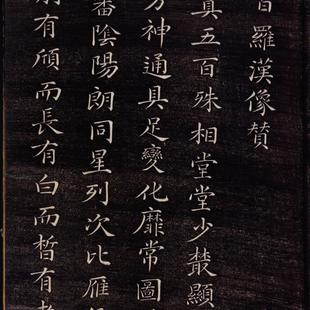 百羅漢像贊
真五百殊相堂堂少叢顯
方神通具足變化靡常圖
番陰陽朗同星列次比雁
有頎而長有白而皙有